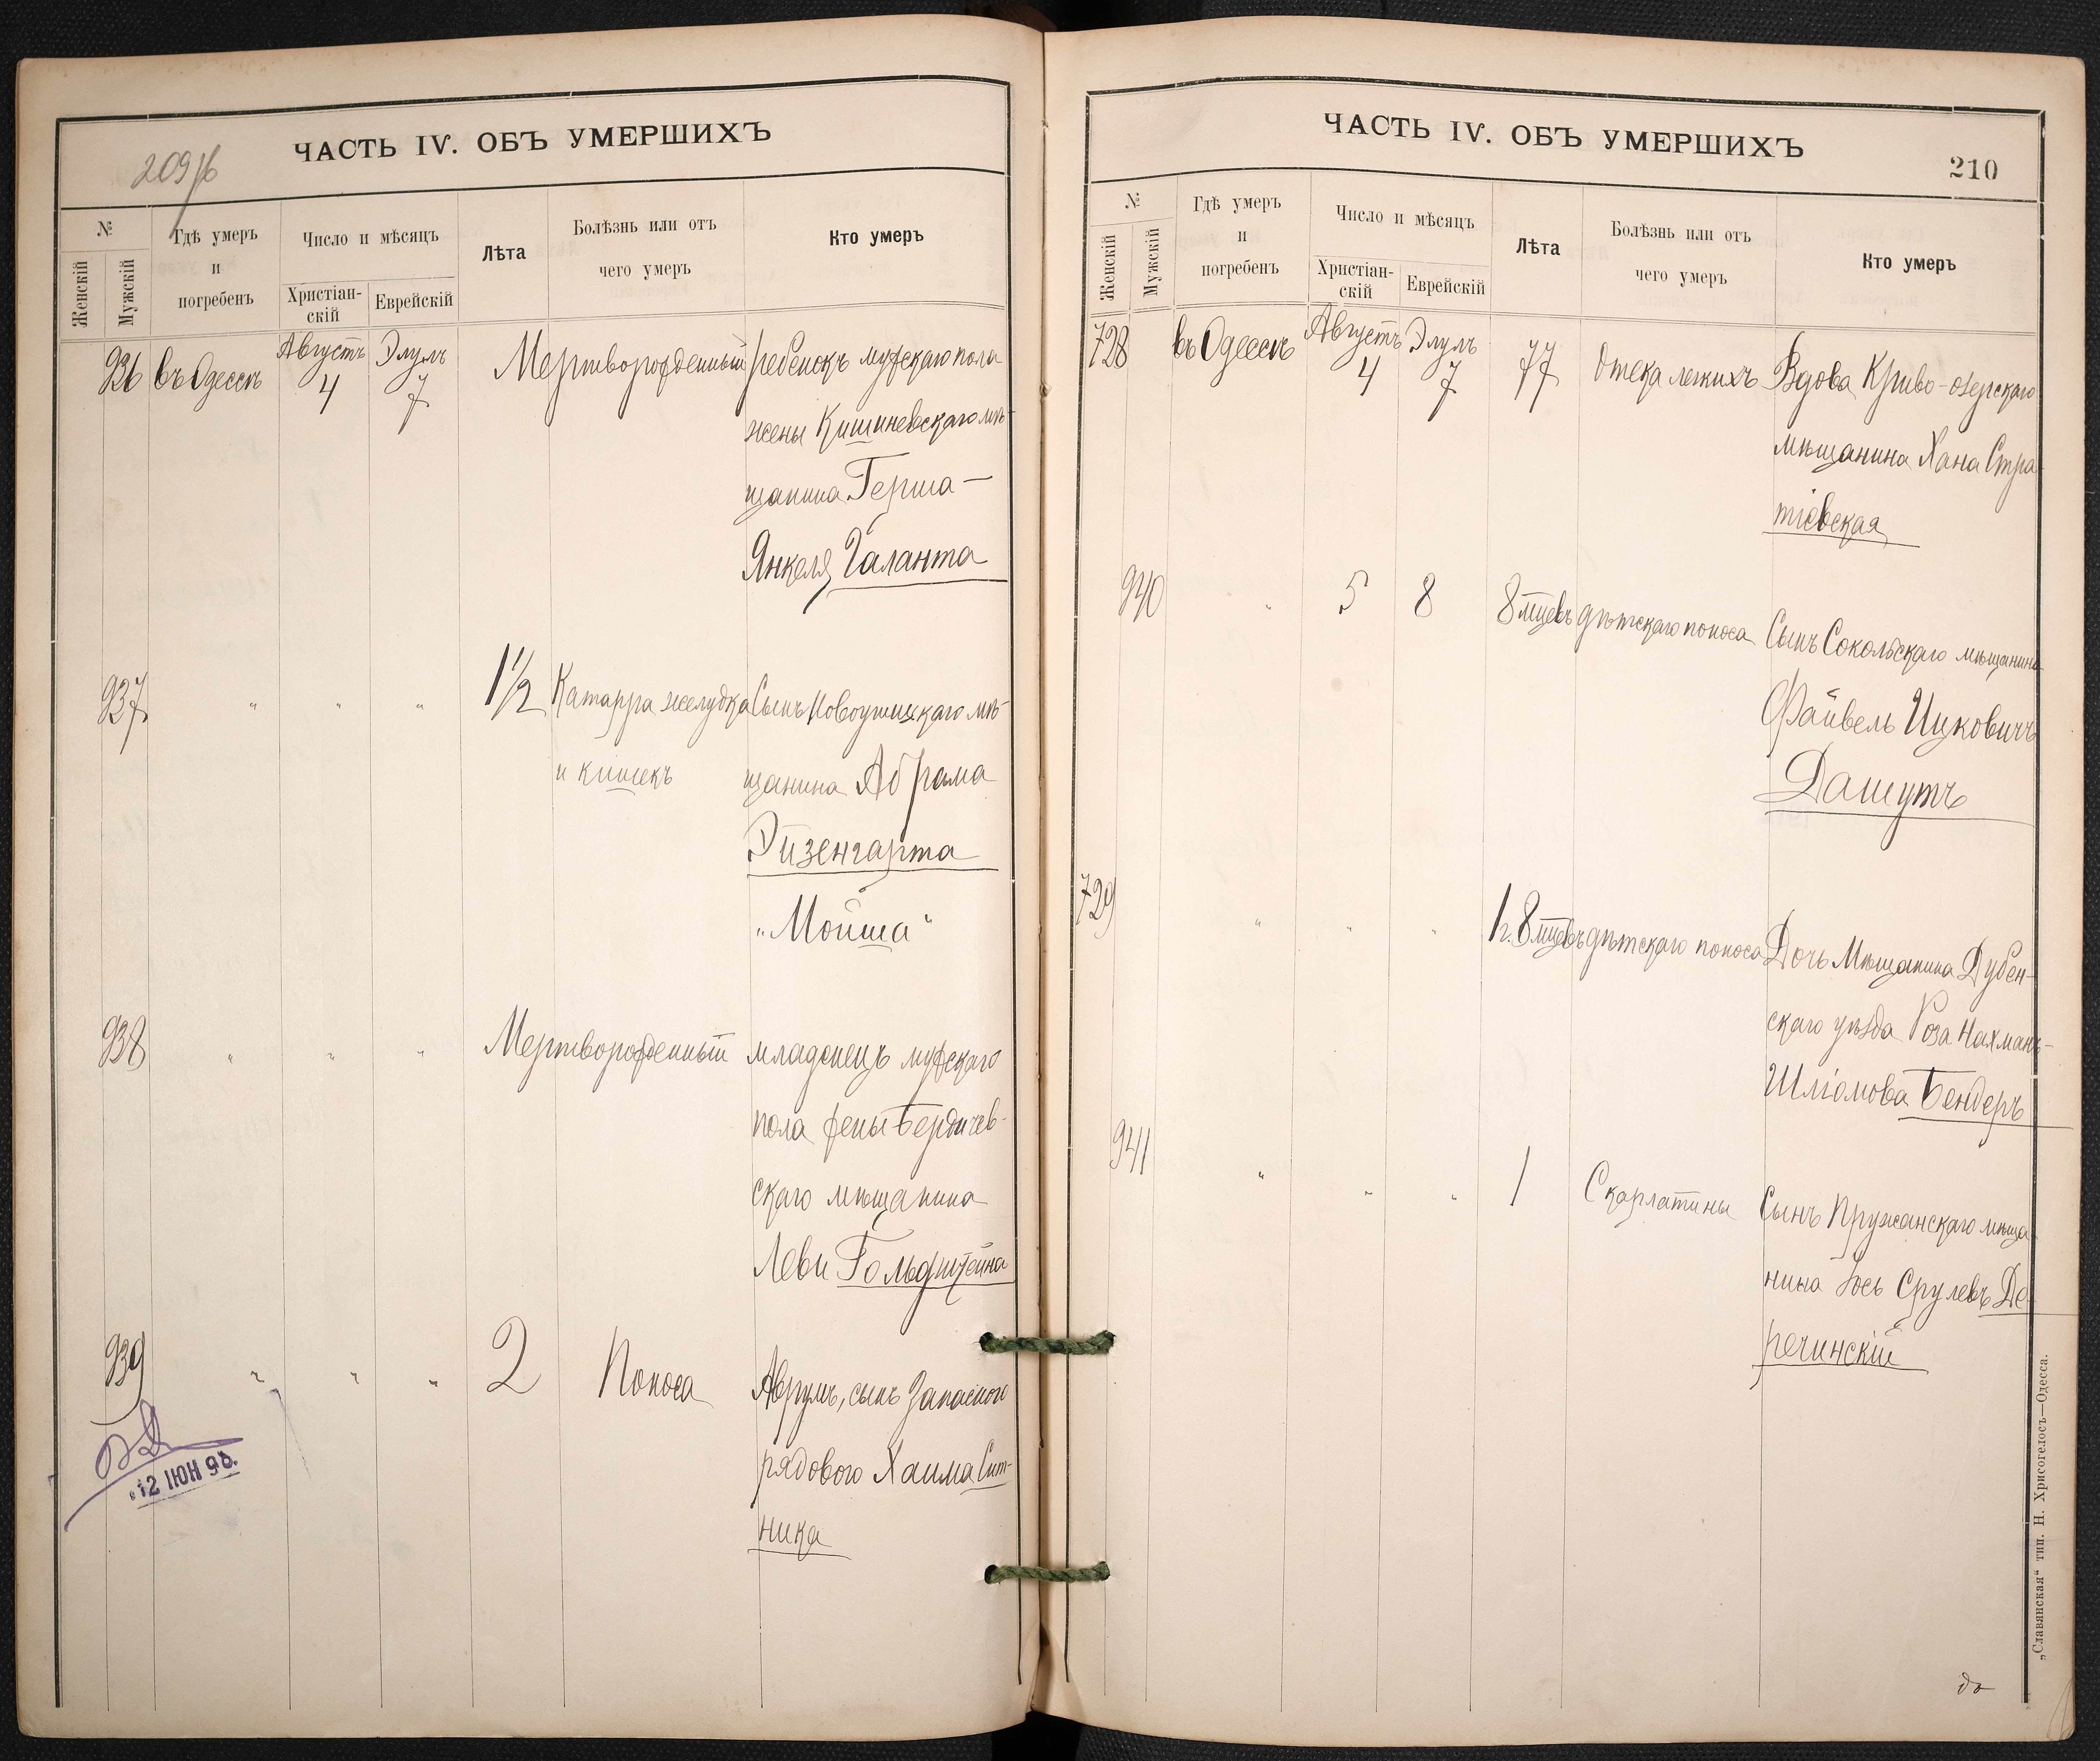 209/б
ЧАСТЬ IV. ОБЪ УМЕРШИХЪ
№
Женскій
Мужскій
Гдѣ умеръ
и
погребенъ
Число и мѣсяцъ
Христіан-
скій
Еврейскій
Лѣта
Болѣзнь или отъ
чего умеръ
Кто умеръ
936 въ Одессѣ Августъ 4 Элулъ 7 Мертворожденный ребенокъ мужскаго пола
жены Кишиневскаго мѣ-
щанина Герша-
Янкеля Галанта
937 " " " 1½ Катарра желудка Сынъ Новоушицкаго мѣ-
и кишекъ щанина Абрама
Эйзенгарта
"Мойша"
938 " " " Мертворожденный младенецъ мужскаго
пола жены Бердичев-
скаго мѣщанина
Леви Гольдштейна
939 " " " 2 Поноса Аврумъ, сынъ Запаснаго
рядового Хаима Сит-
ника
12 ІЮН 98.
ЧАСТЬ IV. ОБЪ УМЕРШИХЪ
210
№
Женскій
Мужскій
Гдѣ умеръ
и
погребенъ
Число и мѣсяцъ
Христіан-
скій
Еврейскій
Лѣта
Болѣзнь или отъ
чего умеръ
Кто умеръ
728 въ Одессѣ Августъ 4 Элулъ 7 77 Отека легкихъ Вдова Криво-озерскаго
мѣщанина Хана Стра-
тіевская
940 " 5 8 8 мцевъ дѣтскаго поноса Сынъ Сокольскаго мѣщанина
Файвель Ицковичъ
Дашутъ
729 " " " 1 г. 8 мцевъ дѣтскаго поноса Дочь Мѣщанина Дубен-
скаго уѣзда Роза Нахманъ-
Шліомова Бендеръ
941 " " " 1 Скарлатины Сынъ Пружанскаго мѣща-
нина Іось Срулевъ Де-
речинскій
„Славянская“ тип. Н. Хрисогелосъ—Одесса.